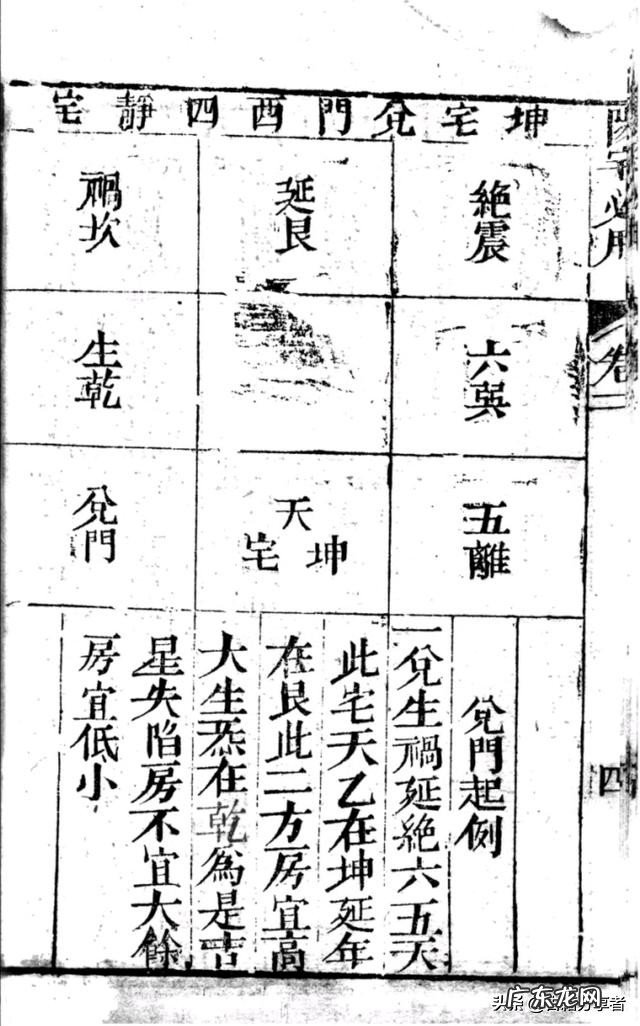 陽宅必用
卷二
四
坤宅兌門西四靜宅
絶震
延艮
禍坎
六巽
生乾
五離
天
坤宅
兌門
兌門起例
一兌生禍延絶六五天
此宅天乙在坤延年
在艮此二方房宜高
大生炁在乾為是吉
星失陷房不宜大餘
房宜低小
广东龙网